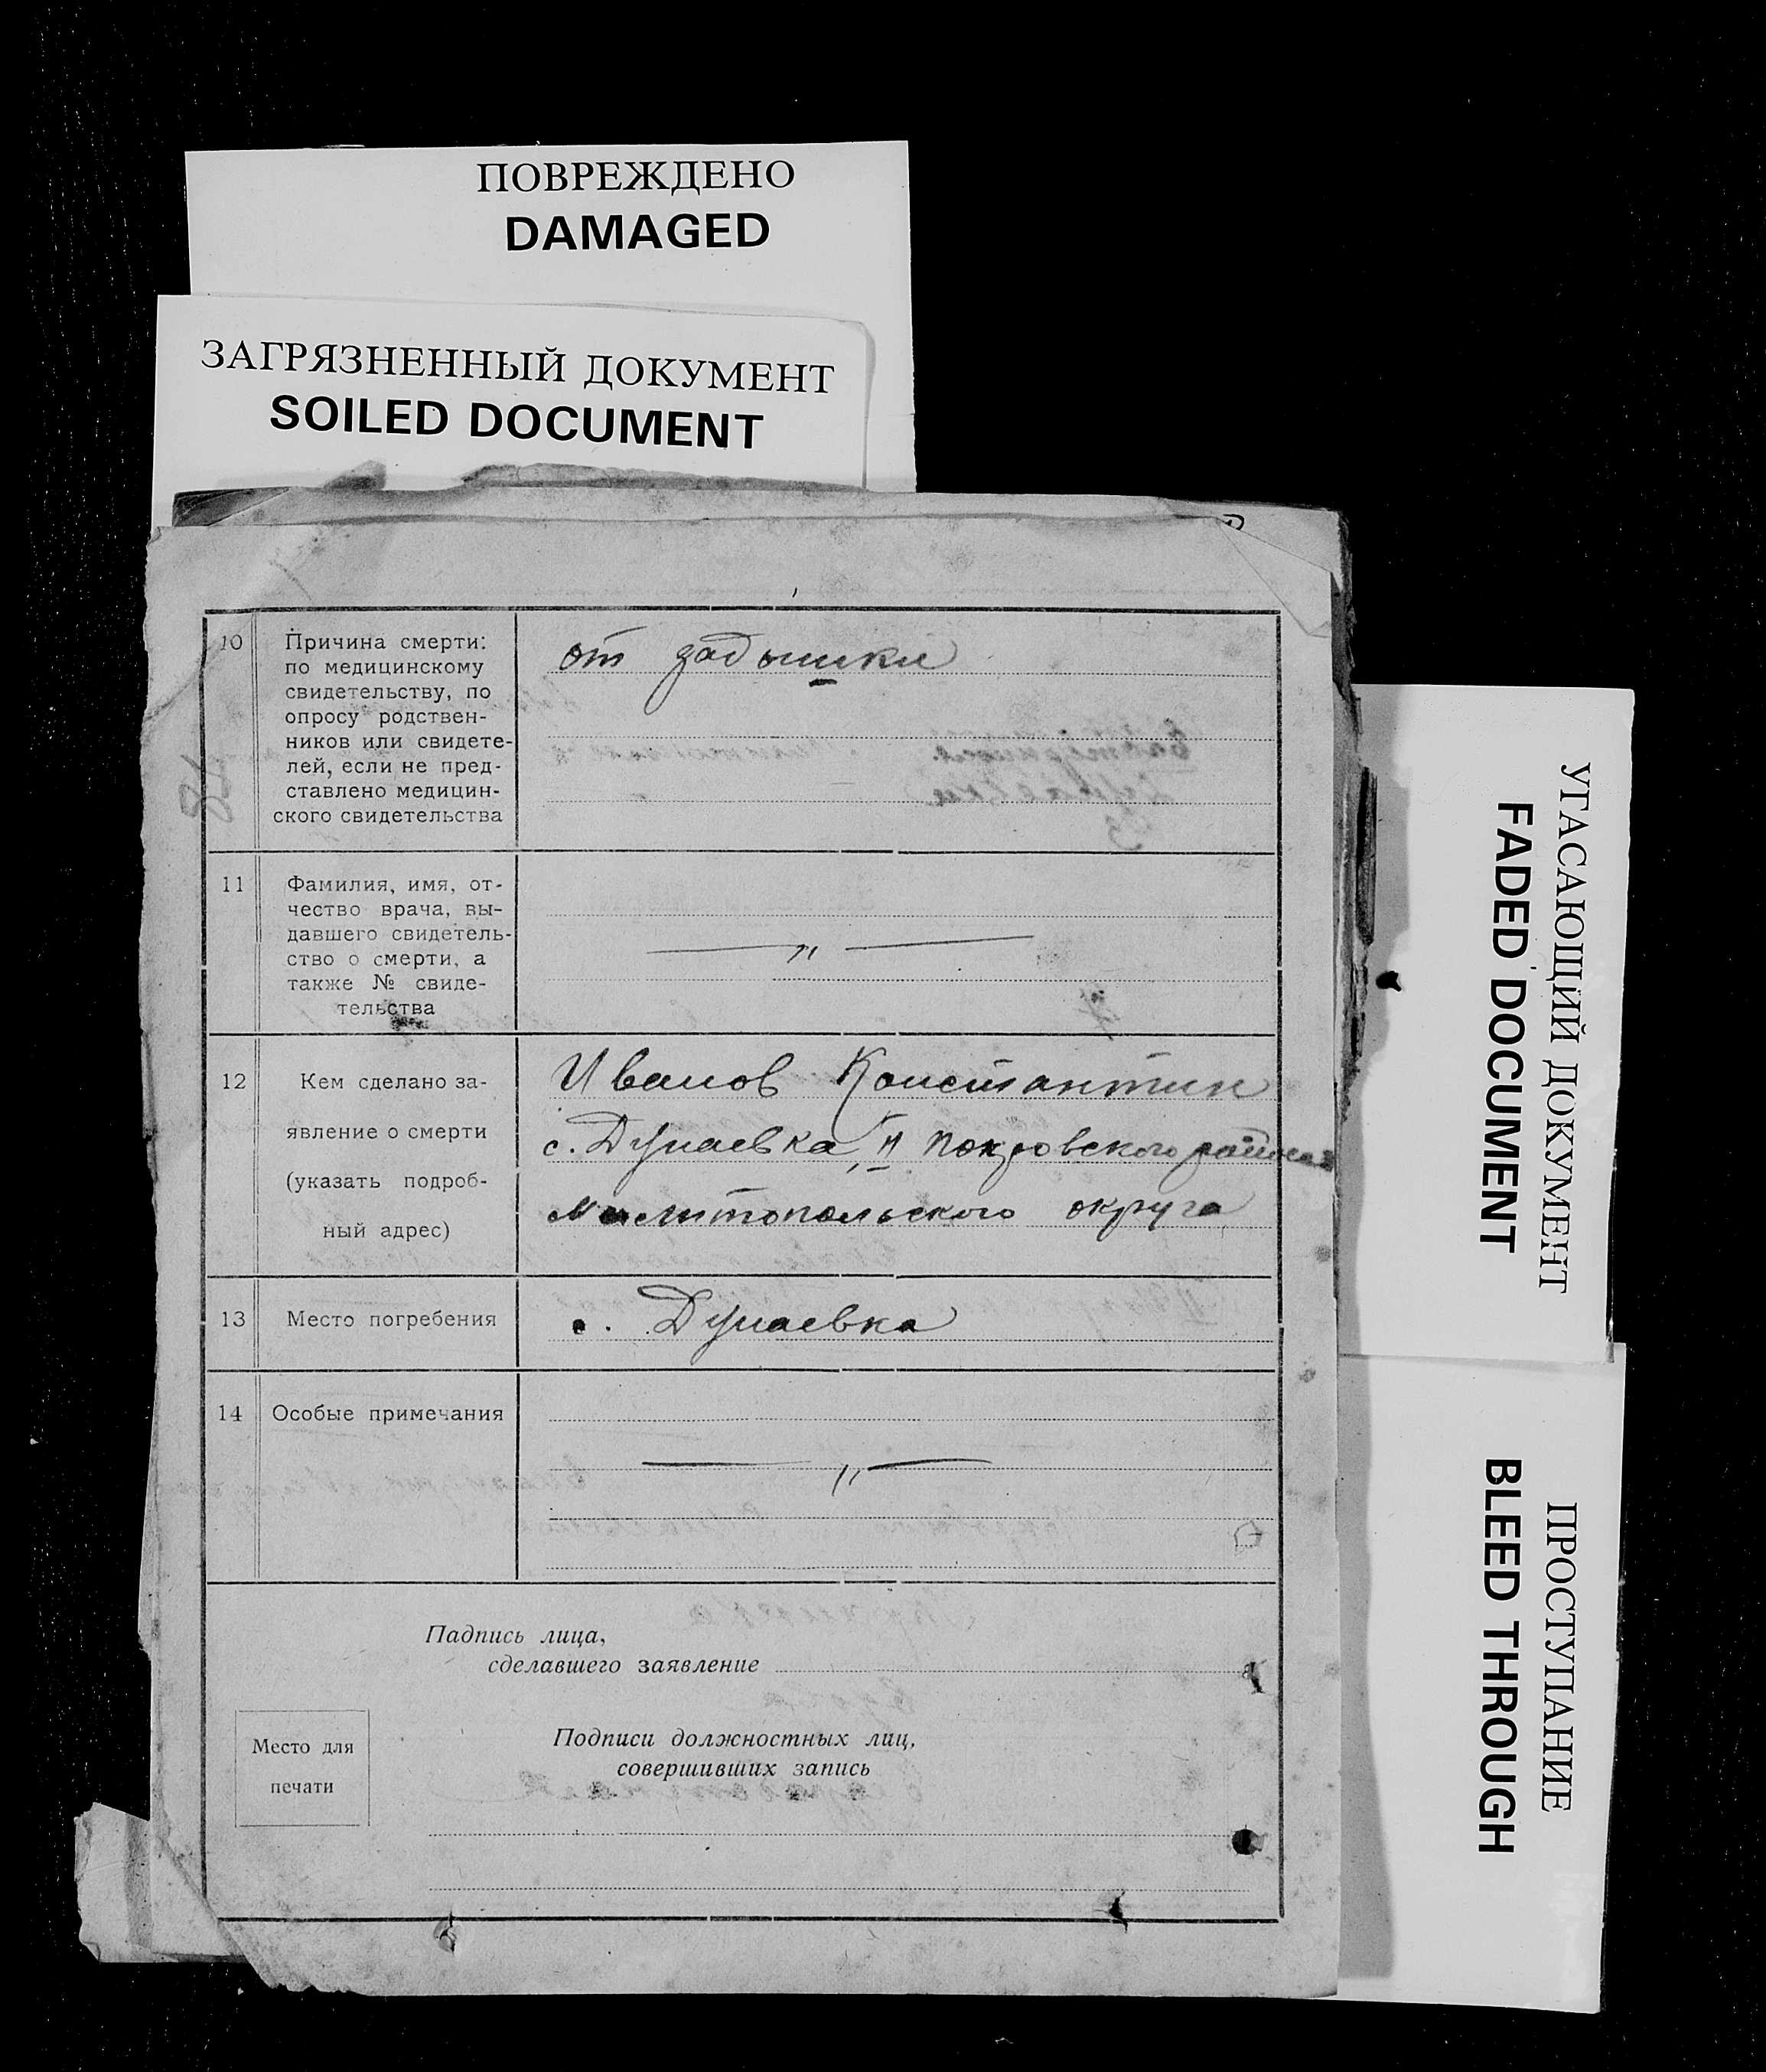 ПОВРЕЖДЕНО
DAMAGED
ЗАГРЯЗНЕННЫЙ ДОКУМЕНТ
SOILED DOCUMENT
10
Причина смерти:
по медицинскому
свидетельству, по
опросу родствен-
ников или свидете-
лей, если не пред-
ставлено медицин-
ского свидетельства
от задышки
11
Фамилия, имя, от-
чество врача, вы-
давшего свидетель-
ство о смерти, а
также № свиде-
тельства
— „ —
12
Кем сделано за-
явление о смерти
(указать подроб-
ный адрес)
Иванов Константин
с. Дунаевка, II Покровского района
Мелитопольского округа
13
Место погребения
с. Дунаевка
14
Особые примечания
— „ —
Падпись лица,
сделавшего заявление
Место для
печати
Подписи должностных лиц,
совершивших запись
УГАСАЮЩИЙ ДОКУМЕНТ
FADED DOCUMENT
ПРОСТУПАНИЕ
BLEED THROUGH